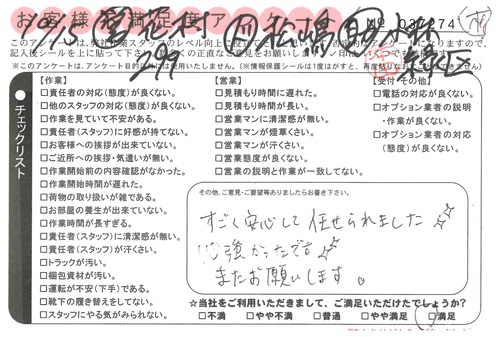 お客様満足度ア
11/15 営 花村 作 松嶋 助 小林
No 032274
このアンケートは、弊社
記入後シールを上に貼って下さ
※このアンケートは、アンケート目的以外には使用いたしません。(※情報保護シールは1度はがすと、再度貼りなおたことができません
チェックリスト
【作業】
□責任者の対応(態度)が良くない。
□他のスタッフの対応(態度)が良くない。
□作業を見ていて不安がある。
□責任者(スタッフ)に好感が持てない。
□お客様への挨拶が出来ていない。
□ご近所への挨拶・気遣いが無い。
□作業開始前の内容確認がなかった。
□作業開始時間が遅れた。
□荷物の取り扱いが雑である。
□お部屋の養生が出来ていない。
□作業時間が長すぎる。
□責任者(スタッフ)に清潔感が無い。
□責任者(スタッフ)が汗くさい。
□トラックが汚い。
□梱包資材が汚い。
□運転が不安(下手)である。
□靴下の履き替えをしてない。
□スタッフにやる気がみられない。
【営業】
□見積もり時間に遅れた。
□見積もり時間が長い。
□営業マンに清潔感が無い。
□営業マンが煙草くさい。
□営業マンが汗くさい。
□営業態度が良くない。
□営業の説明と作業が一致してない。
【受付・その他】
□電話の対応が良くない。
□オプション業者の説明
・作業が良くない。
□オプション業者の対応
(態度)が良くない。
その他、ご意見・ご要望等ありましたらお書き下さい。
すごく安心して任せられました
心強かったです
またお願いします。
☆当社をご利用いただきまして、ご満足いただけたでしょうか?
□不満 □やや不満 □普通 □やや満足 □満足